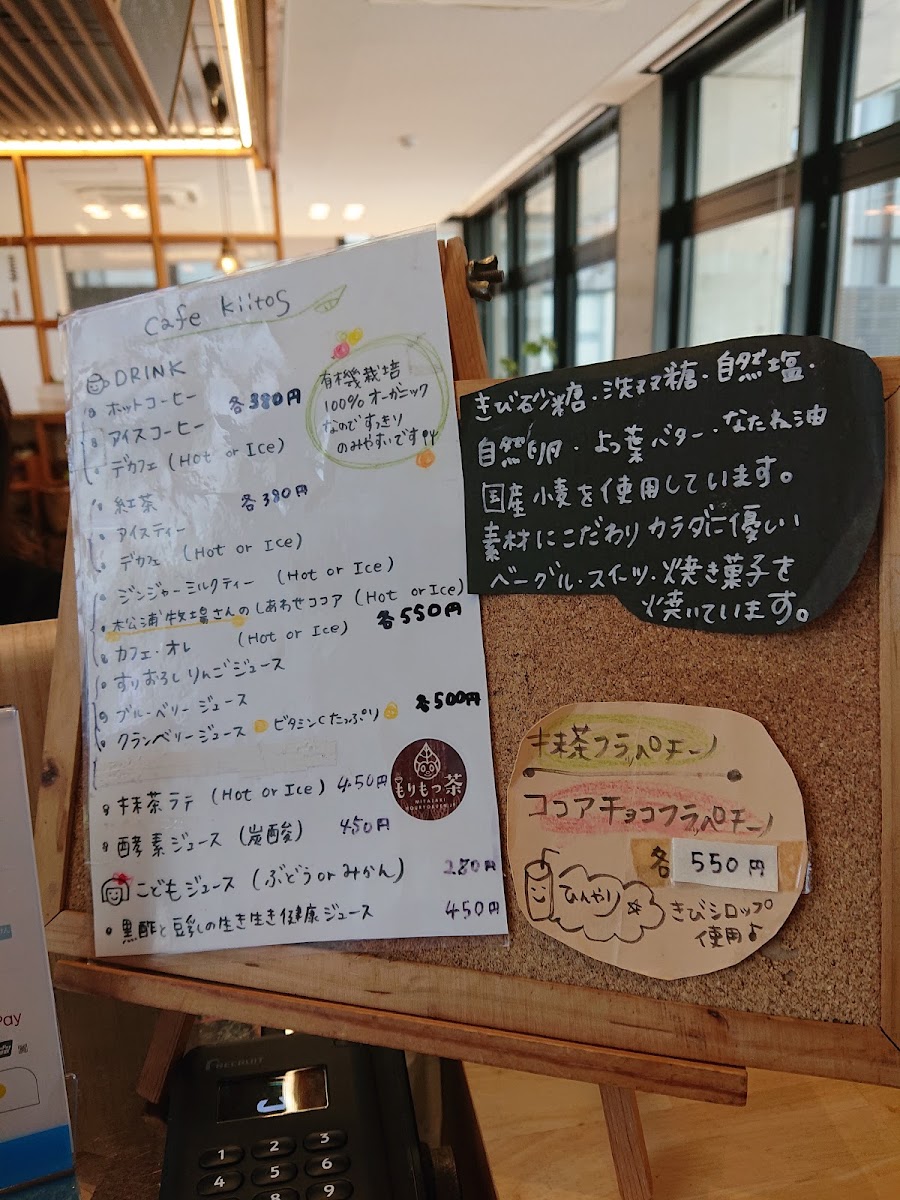 cafe kiitos
DRINK
ホットコーヒー
各380円
アイスコーヒー
デカフェ (Hot or Ice)
有機栽培
100%オーガニック
なのですっきり
のみやすいです
紅茶
各380円
アイスティー
デカフェ (Hot or Ice)
ジンジャーミルクティー (Hot or Ice)
松浦牧場さんのしあわせココア (Hot or Ice)
カフェ・オレ (Hot or Ice) 各550円
すりおろしりんごジュース
ブルーベリージュース
クランベリージュース ビタミンCたっぷり 各500円
抹茶ラテ (Hot or Ice) 450円
酵素ジュース (炭酸) 450円
こどもジュース (ぶどうorみかん) 280円
黒酢と豆乳の生き生き健康ジュース 450円
もりもっ茶
きび砂糖・洗双糖・自然塩・
自然卵・よつ葉バター・なたね油
国産小麦を使用しています。
素材にこだわりカラダに優しい
ベーグル・スイーツ・焼き菓子を
焼いています。
抹茶フラッペチーノ
ココアチョコフラッペチーノ
各 550円
ひんやり
きびシロップ
使用♪
Pay
RECRUIT
1 2 3
4 5 6
8 9